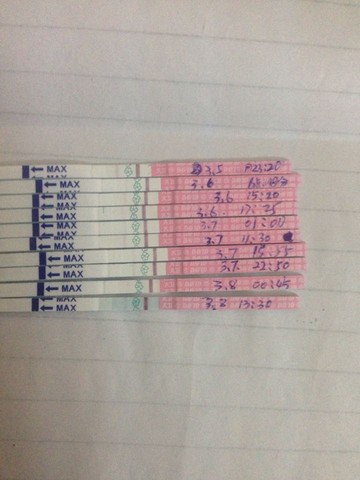 ← MAX 3.5 23:20
← MAX 3.6
← MAX 3.6 15:20
← MAX 3.6 17:25
← MAX 3.7 01:00
← MAX 3.7 11:30
← MAX 3.7
← MAX 3.7 22:50
← MAX 3.8 00:45
← MAX 13:30